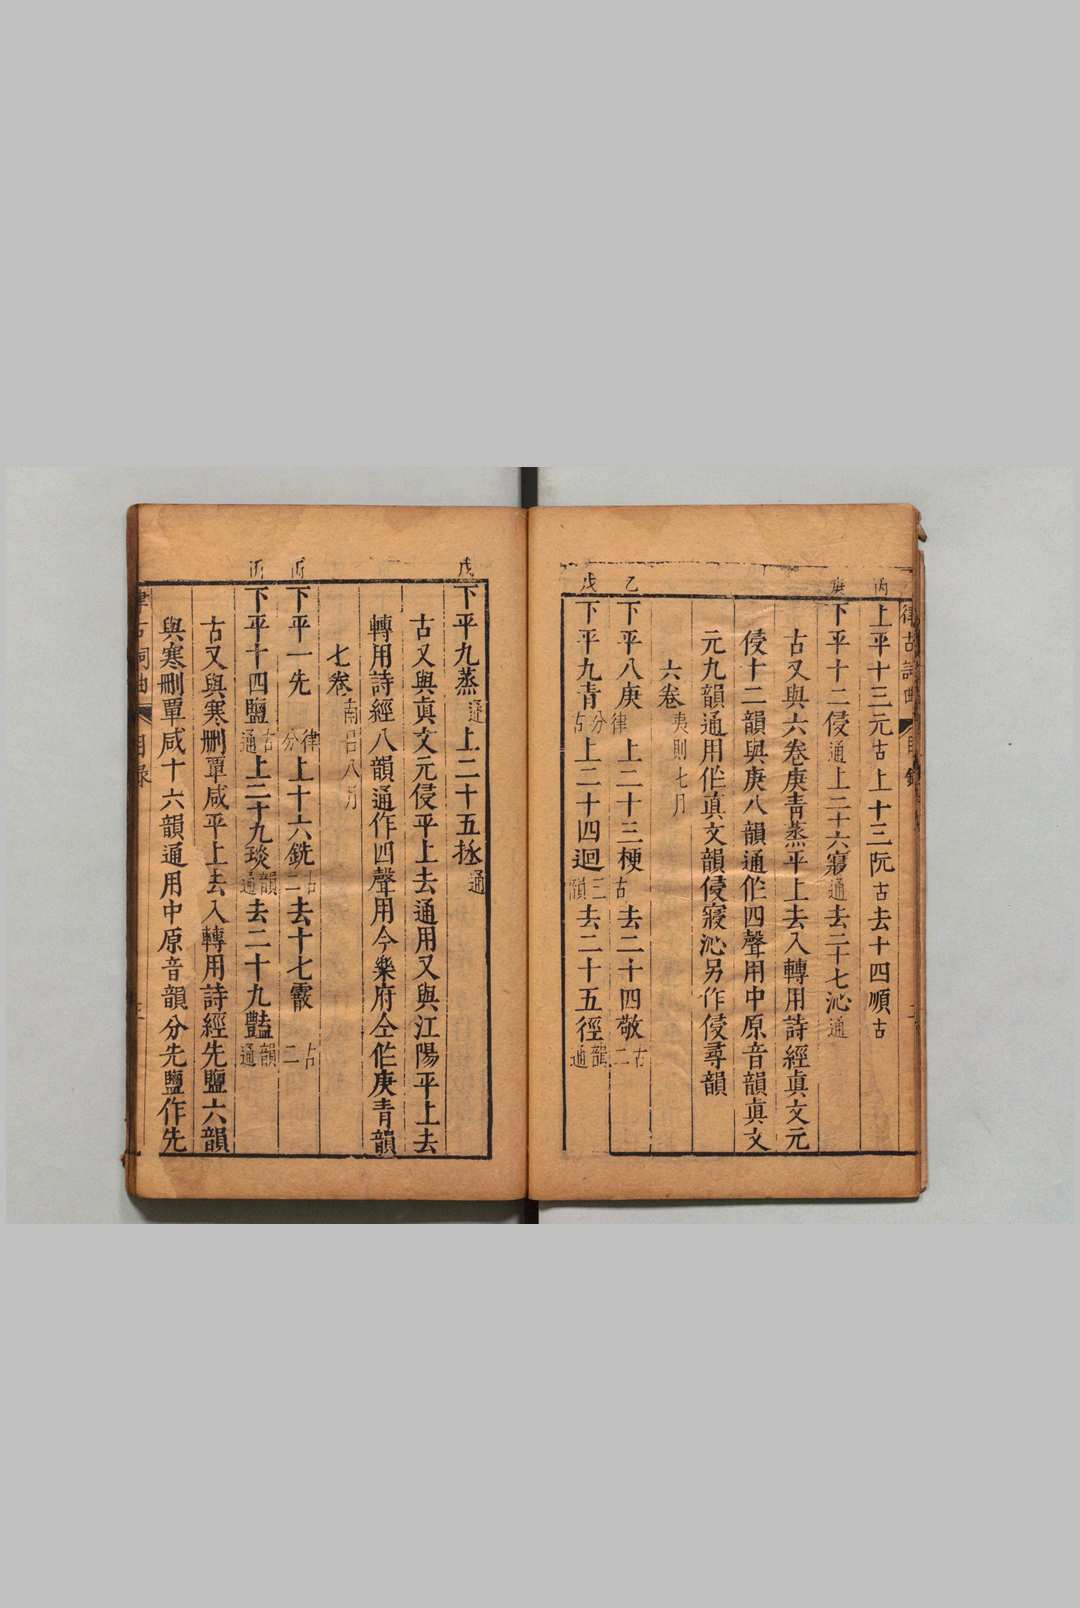 律古詞曲 目錄
丙 上平十三元古上十三阮古去十四願古
庚 下平十二侵通上二十六寢通去二十七沁通
古又與六卷庚青蒸平上去入轉用詩經真文元
侵十二韻與庚八韻通作四聲用中原音韻真文
元九韻通用作真文韻侵寢沁另作侵尋韻
六卷夷則七月
乙 下平八庚律 上二十三梗古去二十四敬古二
戊 下平九青分古上二十四迥三韻去二十五徑韻通
戊 下平九蒸通上二十五拯通
古又與真文元侵平上去通用又與江陽平上去
轉用詩經八韻通作四聲用今樂府仝作庚青韻
七卷南呂八月
丙 下平一先律分上十六銑古二去十七霰古二
丙 下平十四鹽古通上二十九琰韻通去二十九豔韻通
古又與寒刪覃咸平上去入轉用詩經先鹽六韻
與寒刪覃咸十六韻通用中原音韻分先鹽作先
律古詞曲 目錄